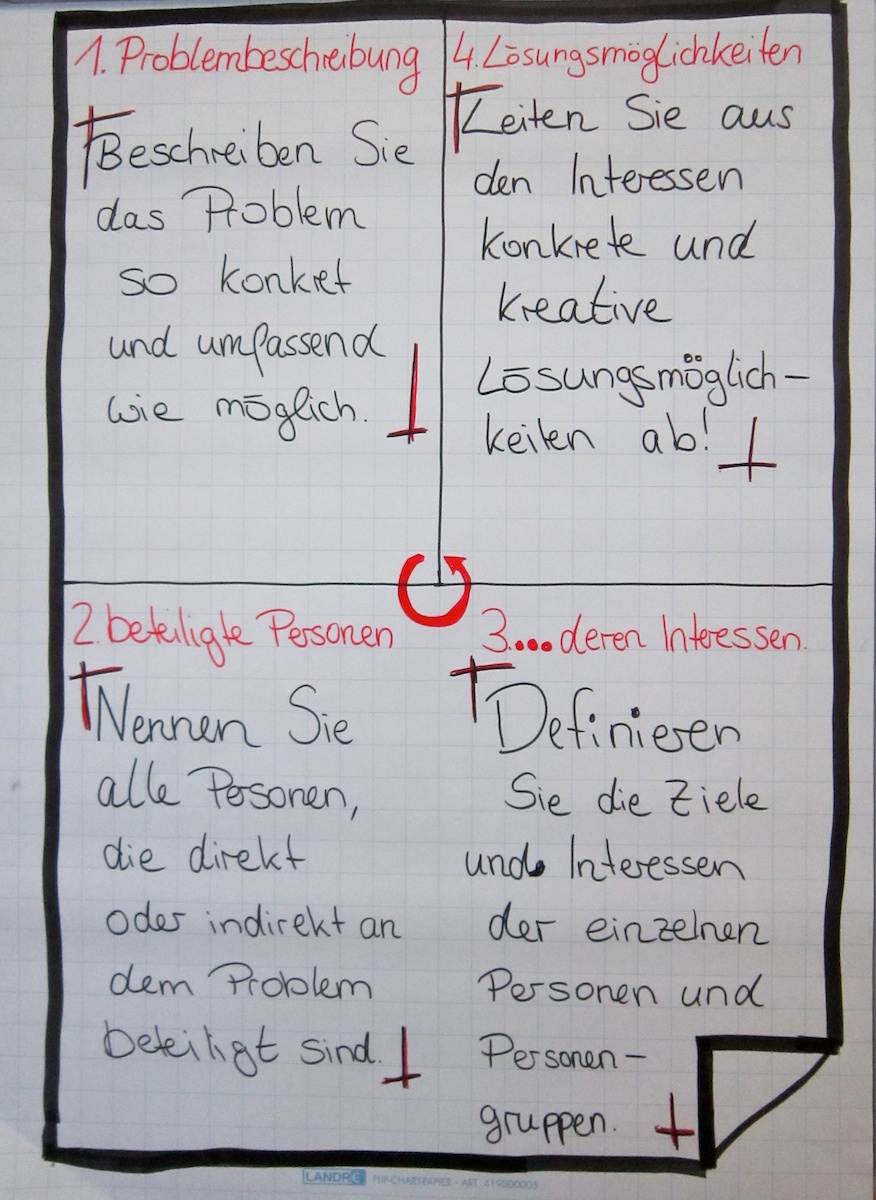 1. Problembeschreibung
Beschreiben Sie
das Problem
so konkret
und umfassend
wie möglich.
2. beteiligte Personen
Nennen Sie
alle Personen,
die direkt
oder indirekt an
dem Problem
beteiligt sind.
3.... deren Interessen.
Definieren
Sie die Ziele
und Interessen
der einzelnen
Personen und
Personen-
gruppen.
4. Lösungsmöglichkeiten
Leiten Sie aus
den Interessen
konkrete und
kreative
Lösungsmöglich-
keiten ab!
LANDRÉ FLIP-CHARTPAPIER · ART. 419000005